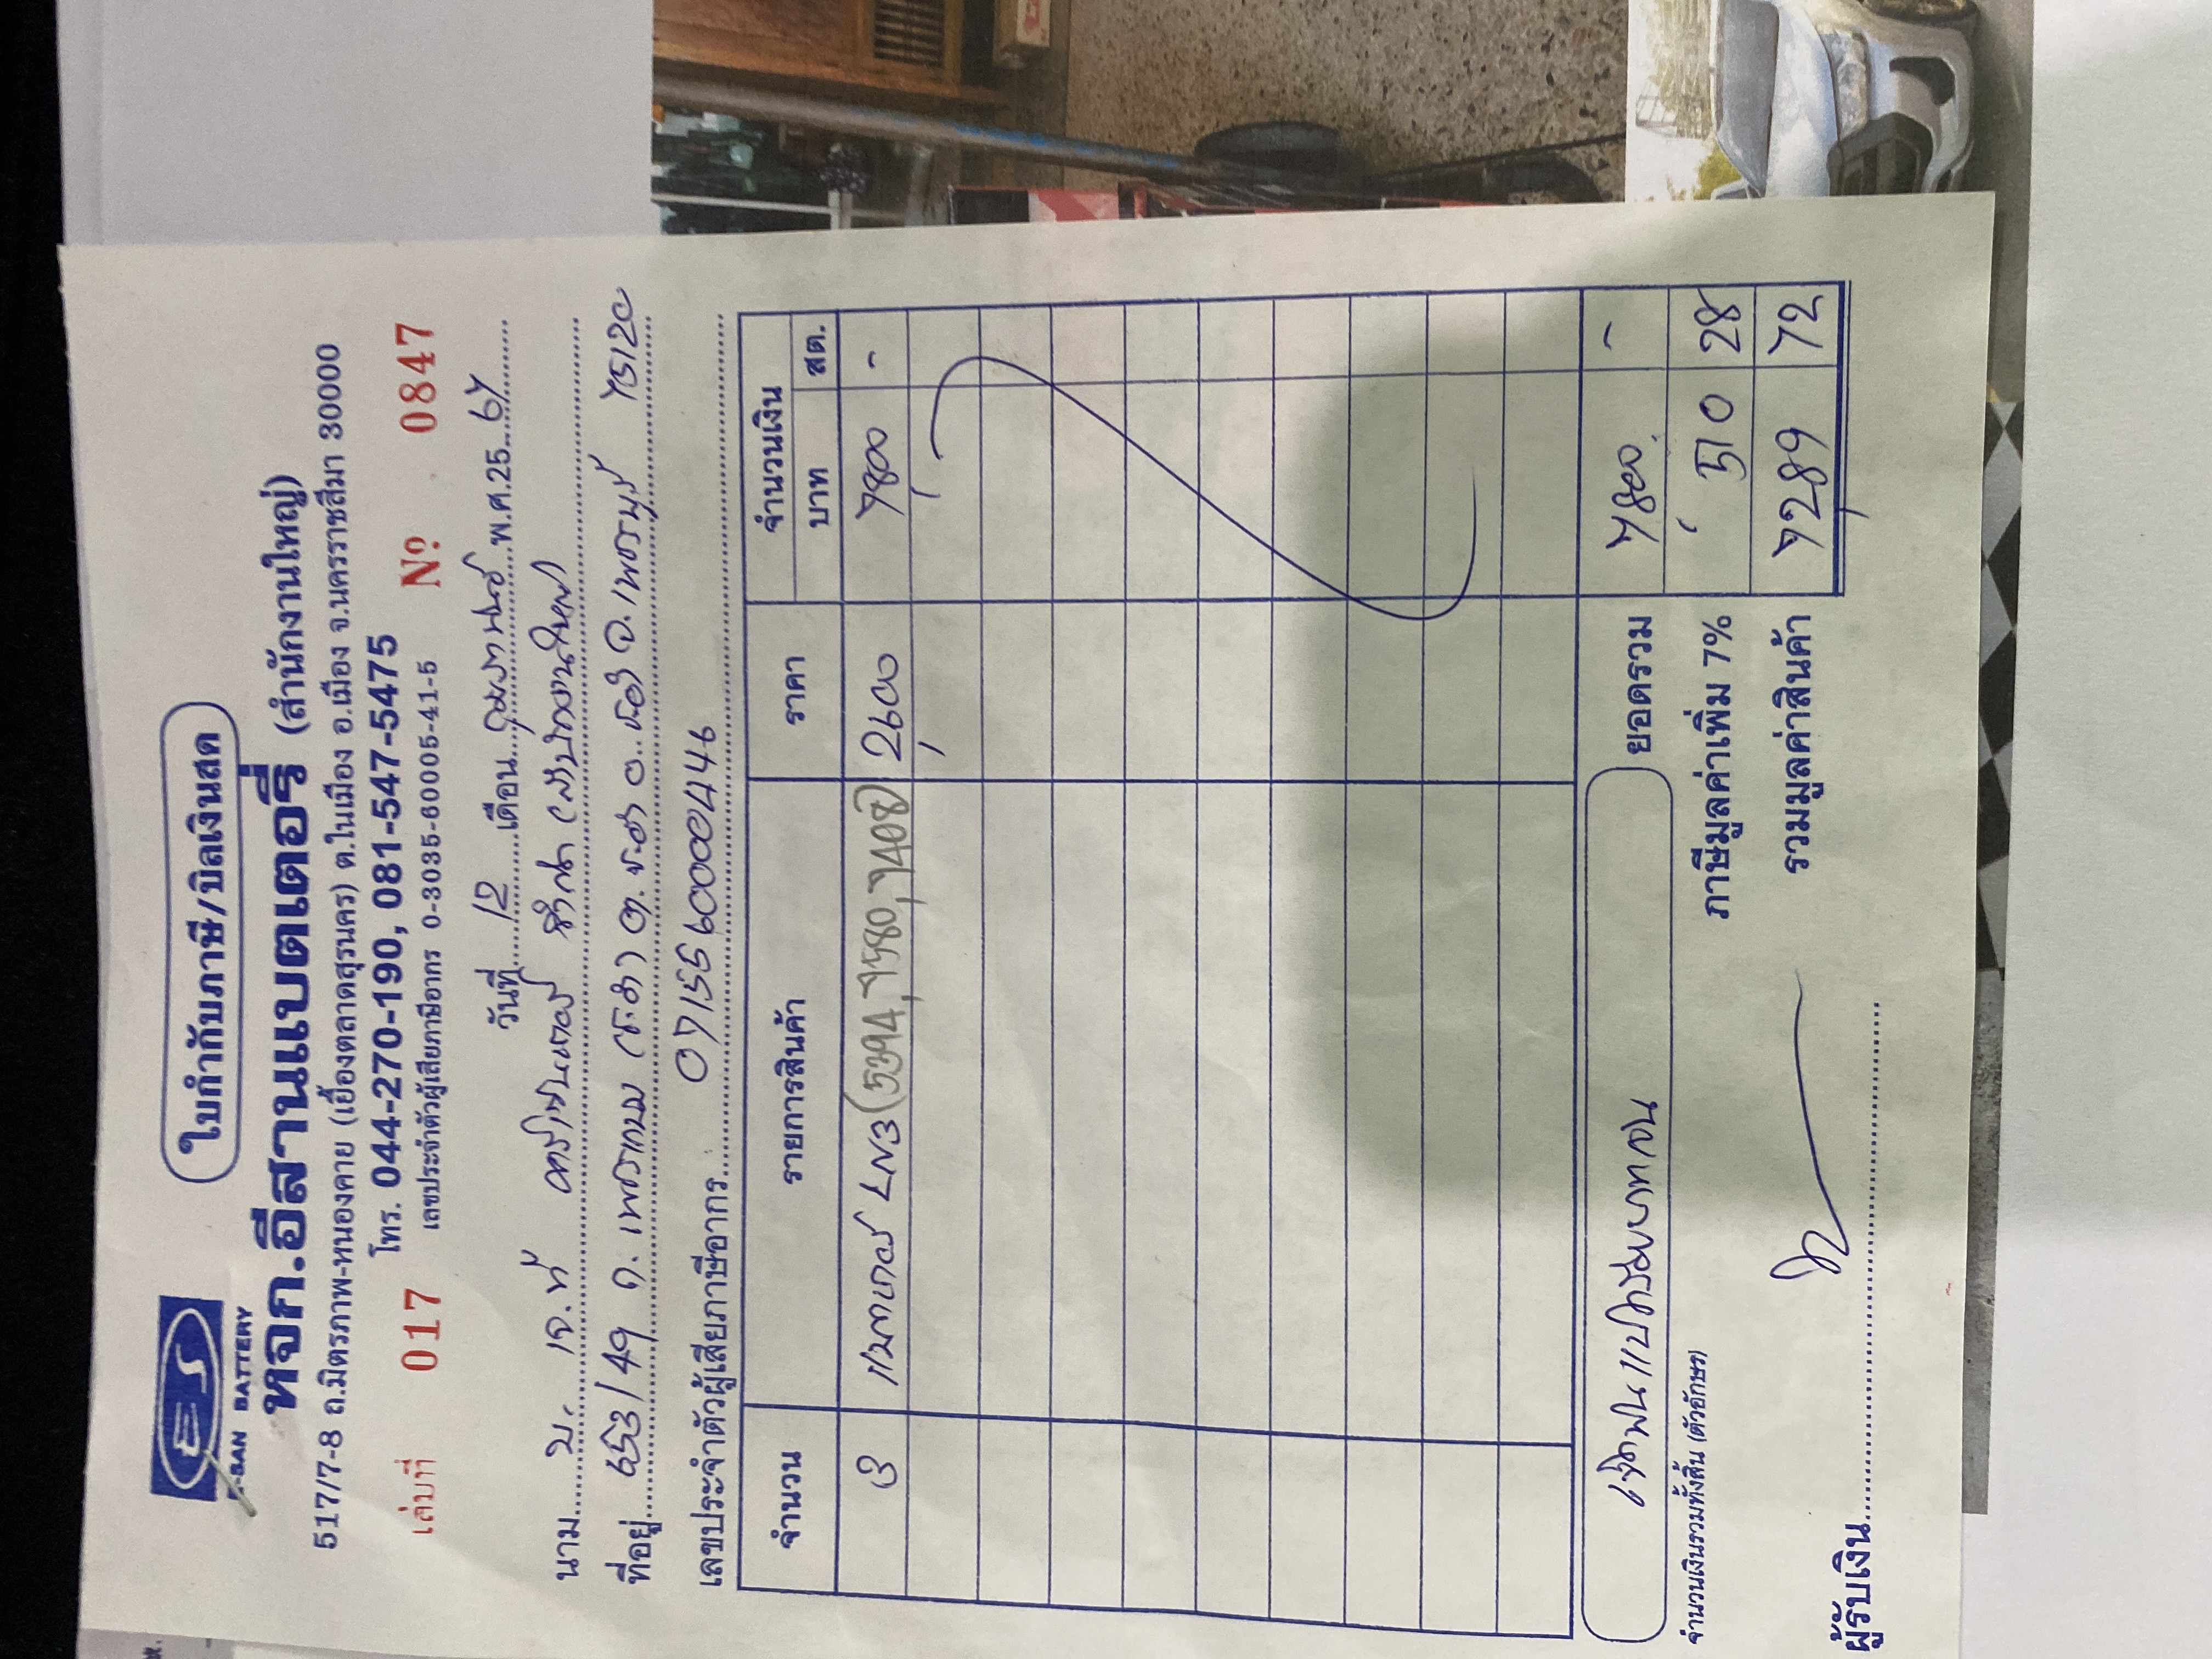 ES
E-SAN BATTERY
ใบกำกับภาษี/บิลเงินสด
หจก.อีสานแบตเตอรี่ (สำนักงานใหญ่)
517/7-8 ถ.มิตรภาพ-หนองคาย (เยื้องตลาดสุรนคร) ต.ในเมือง อ.เมือง จ.นครราชสีมา 30000
โทร. 044-270-190, 081-547-5475
เล่มที่ 017 เลขประจำตัวผู้เสียภาษีอากร 0-3035-60005-41-5 Nº 0847
วันที่ 12 เดือน กุมภาพันธ์ พ.ศ.25 67
นาม บ. เจ.ที (สำนักงานใหญ่)
ที่อยู่ 653/49 ถ. เพชรเกษม จ. เพชรบุรี 75120
เลขประจำตัวผู้เสียภาษีอากร 0715560000446
จำนวน รายการสินค้า ราคา จำนวนเงิน
บาท สต.
3 แบตเตอรี่ LN3 (5394, 7580, 7408) 2600 7800 -
เจ็ดพันแปดร้อยบาทถ้วน ยอดรวม 7800 -
จำนวนเงินรวมทั้งสิ้น (ตัวอักษร) ภาษีมูลค่าเพิ่ม 7% 510 28
รวมมูลค่าสินค้า 7289 72
ผู้รับเงิน